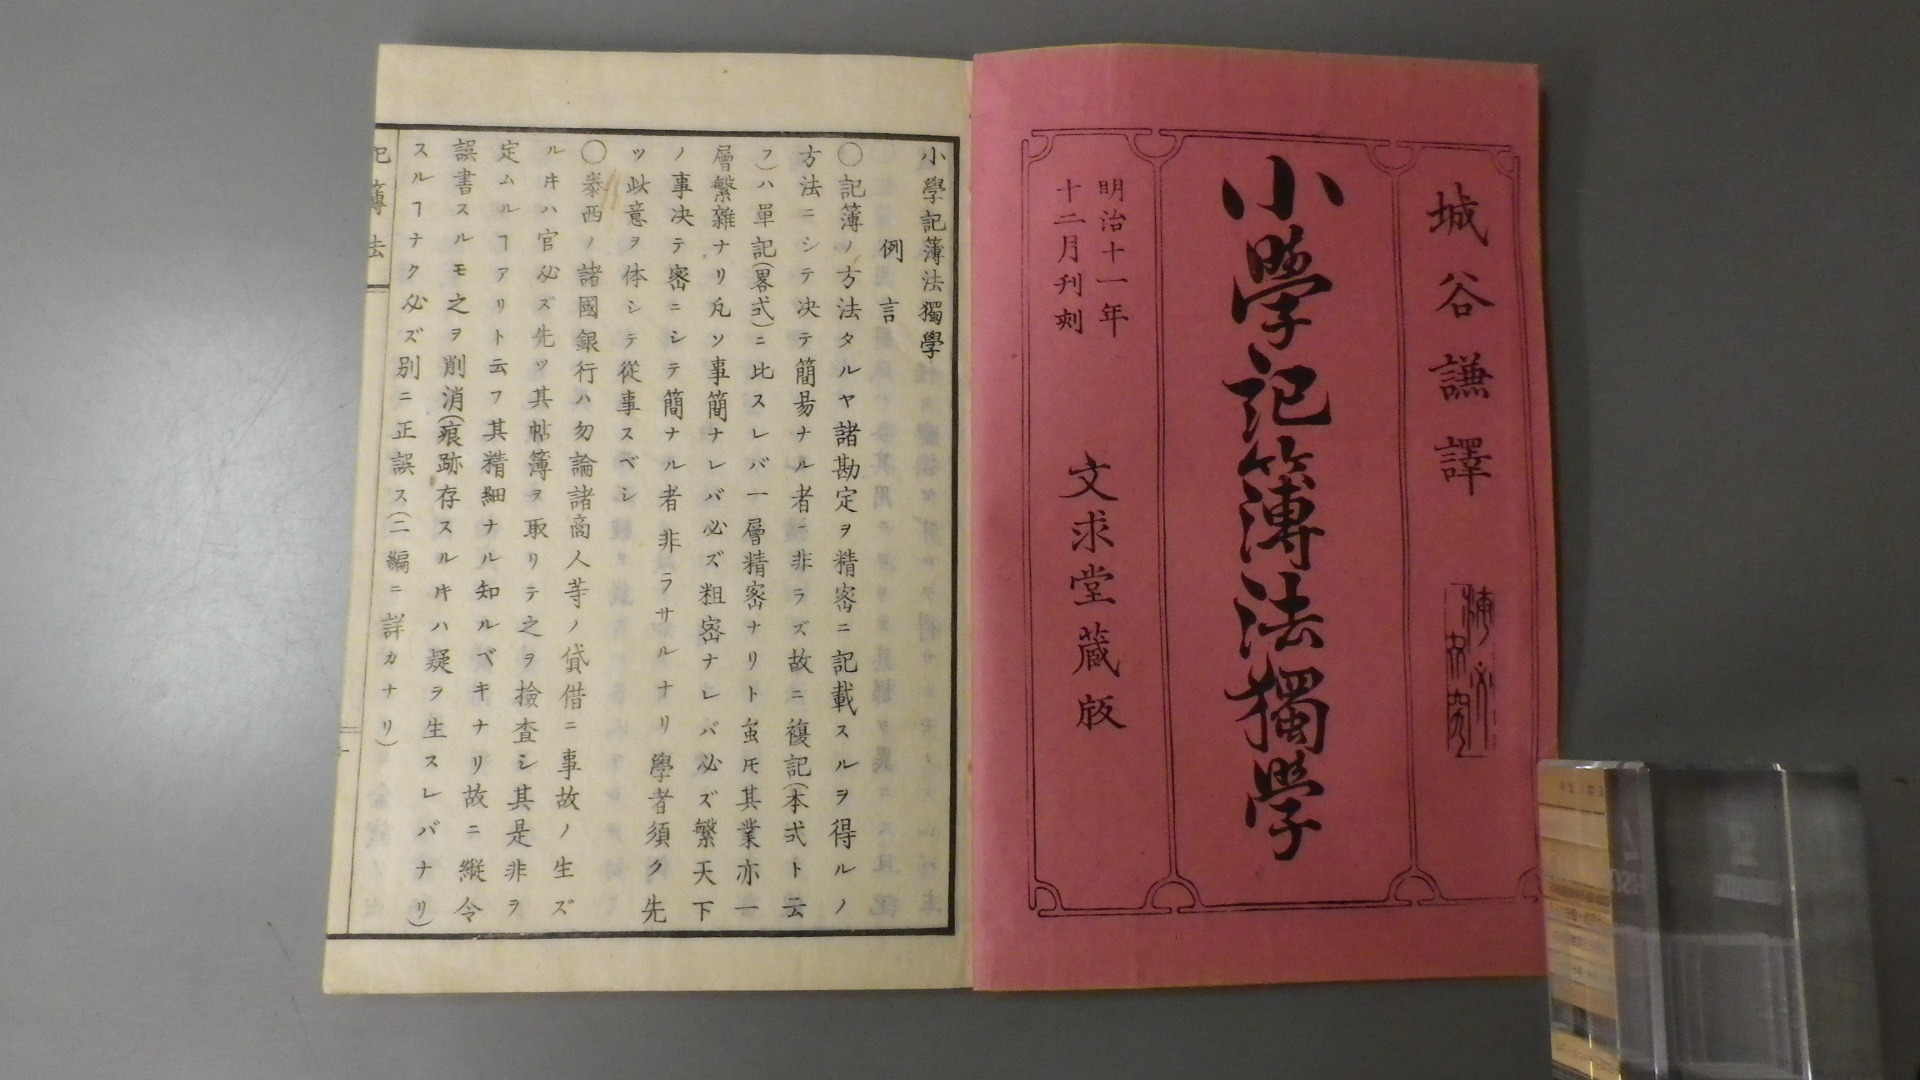 城谷謙譯
小學記簿法獨學
明治十一年
十二月刋刻
文求堂蔵版
小學記簿法獨學
例言
〇記簿ノ方法タルヤ諸勘定ヲ精密ニ記載スルヲ得ルノ
方法ニシテ决テ簡昜ナル者ニ非ラズ故ニ複記(本式ト云
フ)ハ單記(畧式)ニ比スレバ一層精密ナリト虽𪜈其業亦一
層繁雜ナリ凡ソ事簡ナレバ必ズ粗密ナレバ必ズ繁天下
ノ事决テ密ニシテ簡ナル者非ラサルナリ學者須ク先
ツ此意ヲ体シテ從事スベシ
〇泰西ノ諸國銀行ハ勿論諸商人等ノ貸借ニ事故ノ生ズ
ルㇳキハ官必ズ先ツ其帖簿ヲ取リテ之ヲ撿査シ其是非ヲ
定ムルヿアリト云フ其精細ナル知ルベキナリ故ニ縦令
誤書スルモ之ヲ削消(痕跡存スルㇳキハ疑ヲ生スレバナリ)
スルヿナク必ズ別ニ正誤ス(二編ニ詳カナリ)
記簿法